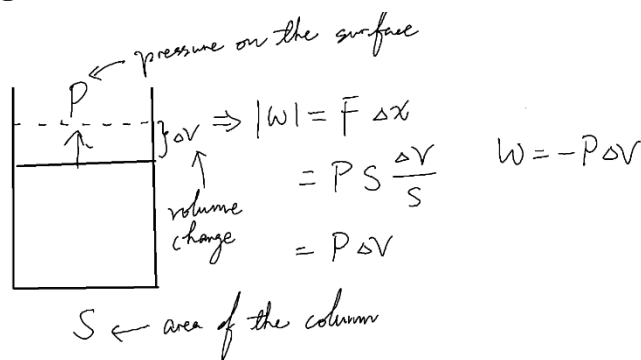 pressure on the surface
P
ΔV ⇒ |W| = F Δx
= P S ΔV/S
W = -PΔV
volume
change
= P ΔV
S ← area of the column